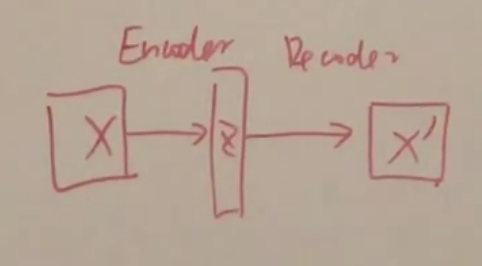 Encoder Decoder
X z X'